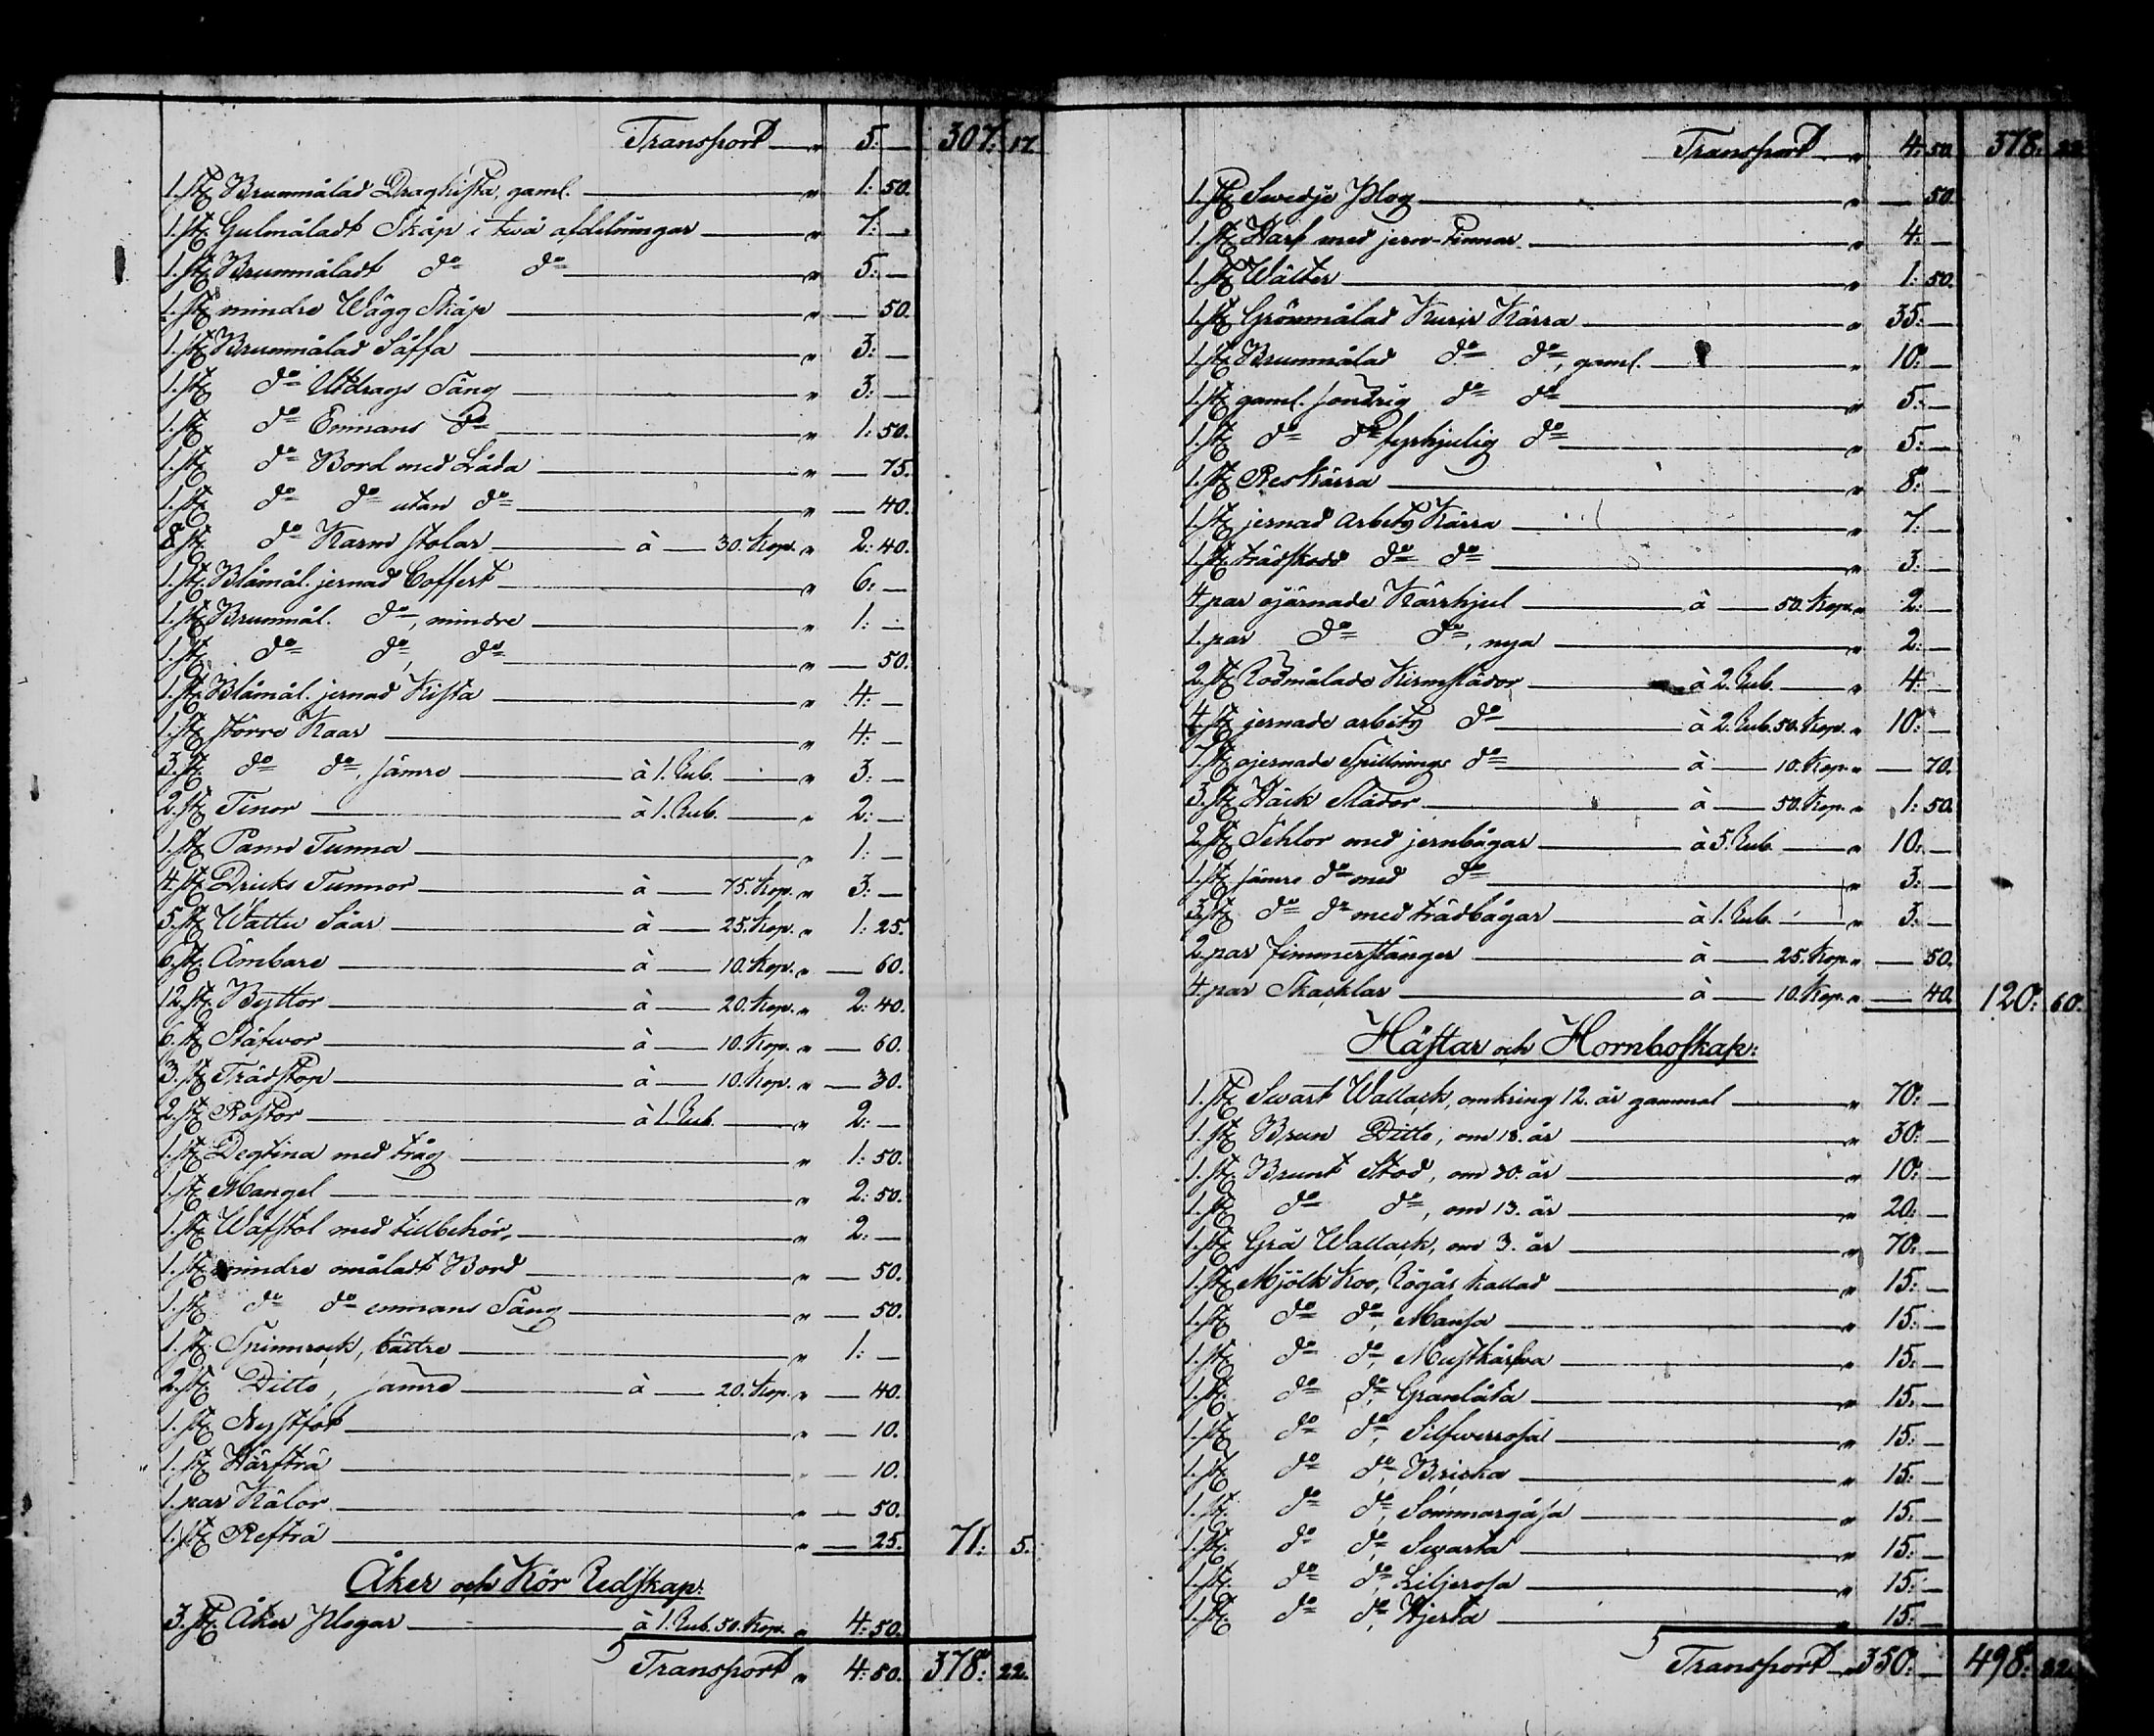 Transport „ 5: — 307: 17.
1. st. Brunmålad Draghista, gaml. „ 1: 50.
1. st. Gulmåladt Skåp i twå afdelningar „ 7: —
1. st. Brunmåladt do do „ 5: —
1. st. mindre Wägg Skåp „ — 50.
1. st. Brunmålad Såffa „ 3: —
1. st. do Utdrags Säng „ 3: —
1. st. do Enmans do „ 1: 50.
1. st. do Bord med Låda „ — 75.
1. st. do do utan do „ — 40.
8. st. do Karm stolar à — 30. Kop. „ 2: 40.
1. st. Blåmål. jernad Coffert „ 6: —
1. st. Brunmål. do, mindre „ 1: —
1. st. do do, do „ — 50.
1. st. Blåmål. jernad Kista „ 4: —
1. st. större Kaar „ 4: —
3. st. do do, sämre à 1. Rub. — „ 3: —
2. st. Tinor à 1. Rub. — „ 2: —
1. st. Pann Tunna „ 1: —
4. st. Dricks Tunnor à — 75. Kop. „ 3: —
5. st. Wattu Såar à — 25. Kop. „ 1: 25.
6. st. Ämbare à — 10. Kop. „ — 60.
12. st. Byttor à — 20. Kop. „ 2: 40.
6. st. Stäfwor à — 10. Kop. „ — 60.
3. st. Trädstop à — 10. Kop. „ — 30.
2. st. Rostor à 1. Rub. — „ 2: —
1. st. Degtina med tråg „ 1: 50.
1. st. Mangel „ 2: 50.
1. st. Wäfstol med tillbehör, „ 2: —
1. st. mindre omåladt Bord „ — 50.
1. st. do do enmans Säng „ — 50.
1. st. Spinnrock, bättre „ 1: —
2. st. Ditto, sämre à — 20. Kop. „ — 40.
1. st. Nystfot „ — 10.
1. st. Härfträ „ — 10.
1. par Kälor „ — 50.
1. st. Refträ „ — 25. 71: 5.
Åker och Kör Redskap:
3. st. Åker Plogar à 1. Rub. 50. Kop. „ 4: 50.
Transport „ 4: 50. 378: 22.
Transport „ 4: 50. 378: 22.
1. st. Swedje Plog „ — 50.
1. st. Harf med jern-Pinnar „ 4: —
1. st. Wälter „ 1: 50.
1. st. Grönmålad Kurir Kärra „ 35: —
1. st. Brunmålad do do, gaml. „ 10: —
1. st. gaml. söndrig do do „ 5: —
1. st. do do fyrhjulig do „ 5: —
1. st. Reskärra „ 8: —
1. st. jernad arbets Kärra „ 7: —
1. st. trädskodd do do „ 3: —
4. par ojärnade Kärrhjul à — 50. Kop. „ 2: —
1. par do do, nya „ 2: —
2. st. Rödmålade Kirmslädor à 2. Rub. — „ 4: —
4. st. jernade arbets do à 2. Rub. 50. Kop. „ 10: —
7. st. ojernade Spillnings do à — 10. Kop. „ — 70.
3. st. Häck Slädor à — 50. Kop. „ 1: 50.
2. st. Sehlor med jernbågar à 5. Rub. — „ 10: —
1. st. sämre do med do „ 3: —
3. st. do do med trädbågar à 1. Rub. — „ 3: —
2. par Timmerstänger à — 25. Kop. „ — 50.
4. par Skacklar à — 10. Kop. „ — 40. 120: 60.
Hästar och Hornboskap:
1. st. Swart Wallack, omkring 12. år gammal „ 70: —
1. st. Brun Ditto, om 18. år „ 30: —
1. st. Brunt Stod, om 20. år „ 10: —
1. st. do do, om 13. år „ 20: —
1. st. Grå Wallack, om 3. år „ 70: —
1. st. Mjölk Koo, Rögås kallad „ 15: —
1. st. do do, Mansa „ 15: —
1. st. do do, Mustkårfva „ 15: —
1. st. do do, Granlåta „ 15: —
1. st. do do, Silfwerrosa „ 15: —
1. st. do do, Bricka „ 15: —
1. st. do do, Sommargåsa „ 15: —
1. st. do do, Swarta „ 15: —
1. st. do do, Liljerosa „ 15: —
1. st. do do, Hjerta „ 15: —
Transport „ 350: — 498: 82.